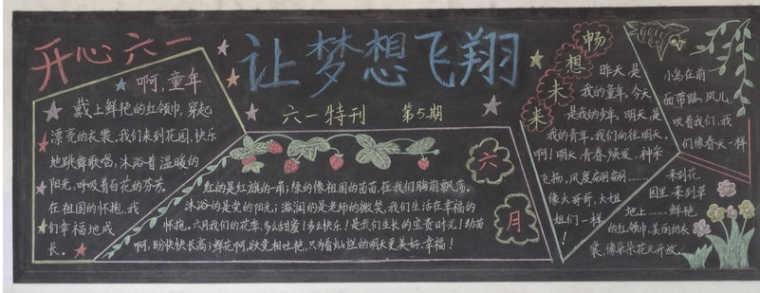 开心六一
让梦想飞翔
六一特刊 第5期
啊,童年
戴上鲜艳的红领巾,穿起
漂亮的衣裳,我们来到花园,快乐
地跳舞歌唱,沐浴着温暖的
阳光,呼吸着百花的芬芳
在祖国的怀抱,我
们幸福地成
长。
红的是红旗的一角;绿的像祖国的苗苗,在我们胸前飘荡。
沐浴的是党的阳光;滋润的是老师的微笑,我们生活在幸福的
怀抱。六月我们的花季,多么甜蜜!多么快乐!是我们生长的宝贵时光!幼苗
啊,盼快快长高;鲜花啊,欲竞相吐艳,只为着灿烂的明天更美好,幸福!
六
月
畅
想
未
来
昨天,是
我的童年,今天,
是我的少年,明天,是
我的青年,我们向往明天,
啊!明天,青春焕发,神采
飞扬,风度翩翩
像大哥哥,大姐
姐们一样
!
小鸟在前
面带路,风儿
吹着我们,我
们像春天一样
来到花
园里,来到草
地上......鲜艳
的红领巾,美丽的衣
裳,像朵朵花儿开放